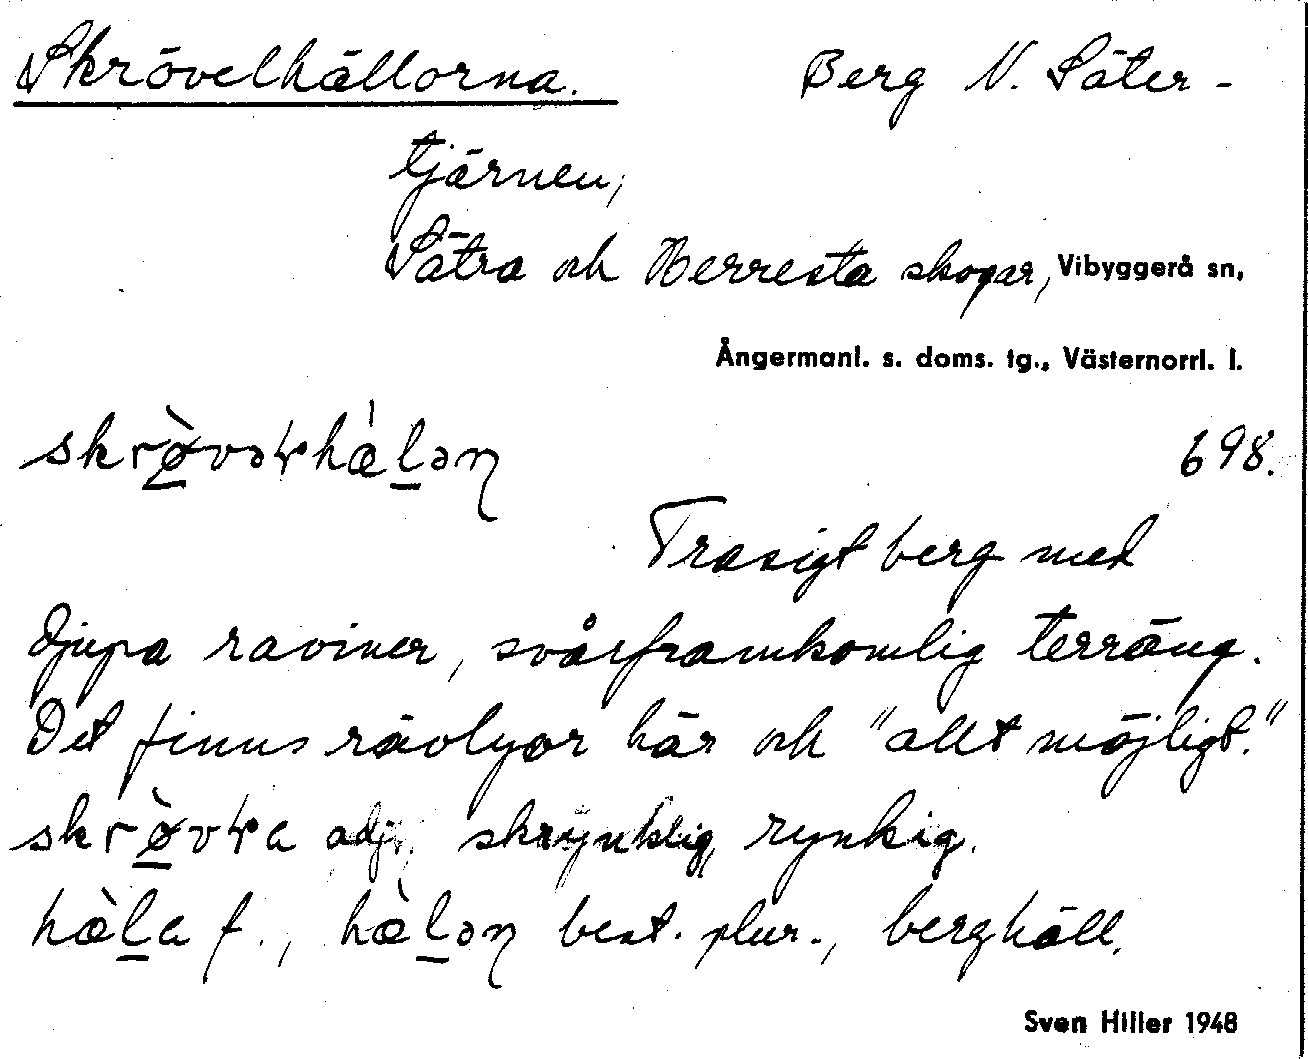 Skrövelhällorna. Berg N. Säter-
tjärnen,
Sätra och Herresta skogar, Vibyggerå sn,
Ångermanl. s. doms. tg., Västernorrl. l.
skrø̀vəɬhæ̀lən 698.
Trasigt berg med
djupa raviner, svårframkomlig terräng.
Det finns rävlyor här och "allt möjligt."
skrø̀vɬa adj. skrynklig, rynkig.
hæ̀la f., hæ̀lən best. plur., berghäll.
Sven Hiller 1948